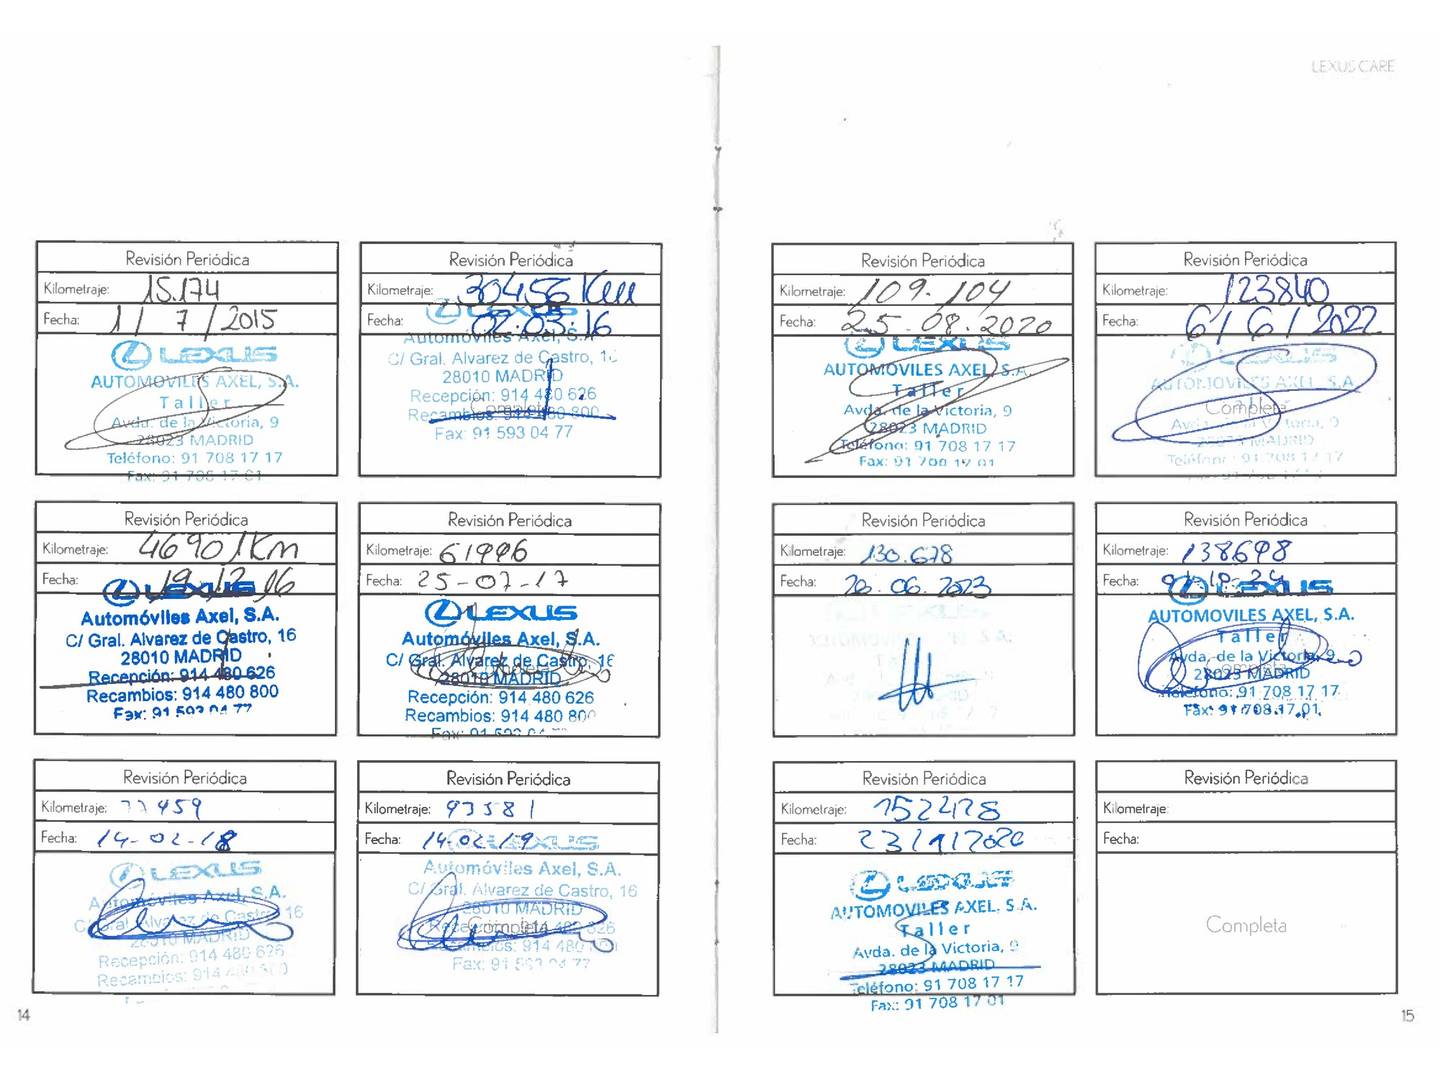 LEXUS CARE
Revisión Periódica
Kilometraje: 15.174
Fecha: 1 / 7 / 2015
LEXUS
AUTOMOVILES AXEL, S.A.
Taller
Avda. de la Victoria, 9
28023 MADRID
Teléfono: 91 708 17 17
Fax: 91 708 17 01
Revisión Periódica
Kilometraje: 30456 Km
Fecha: 02.03.16
Automóviles Axel, S.A.
C/ Gral. Alvarez de Castro, 16
28010 MADRID
Recepción: 914 480 626
Completa
Recambios: 914 480 800
Fax: 91 593 04 77
Revisión Periódica
Kilometraje: 46901 Km
Fecha: 19.12.16
LEXUS
Automóviles Axel, S.A.
C/ Gral. Alvarez de Castro, 16
28010 MADRID
Recepción: 914 480 626
Recambios: 914 480 800
Fax: 91 593 04 77
Revisión Periódica
Kilometraje:
Fecha: 25-07-17
LEXUS
Automóviles Axel, S.A.
C/ Gral. Alvarez de Castro, 16
28010 MADRID
Recepción: 914 480 626
Recambios: 914 480 800
Fax: 91 593 04 77
Revisión Periódica
Kilometraje: 77459
Fecha: 14-02-18
LEXUS
Automóviles Axel, S.A.
C/ Gral. Alvarez de Castro, 16
28010 MADRID
Recepción: 914 480 626
Recambios: 914 480 800
Revisión Periódica
Kilometraje: 93581
Fecha: 14-02-19
LEXUS
Automóviles Axel, S.A.
C/ Gral. Alvarez de Castro, 16
28010 MADRID
Completa
Recepción: 914 480 626
Recambios: 914 480 800
Fax: 91 593 04 77
14
Revisión Periódica
Kilometraje: 109.104
Fecha: 25-08-2020
LEXUS
AUTOMOVILES AXEL, S.A.
Taller
Avda. de la Victoria, 9
28023 MADRID
Teléfono: 91 708 17 17
Fax: 91 708 17 01
Revisión Periódica
Kilometraje: 123840
Fecha: 6 / 6 / 2022
LEXUS
AUTOMOVILES AXEL, S.A.
Completa
Avda. de la Victoria, 9
28023 MADRID
Teléfono: 91 708 17 17
Revisión Periódica
Kilometraje: 130.678
Fecha: 20.06.2023
Revisión Periódica
Kilometraje: 138698
Fecha:
LEXUS
AUTOMOVILES AXEL, S.A.
Taller
Avda. de la Victoria, 9
Completa
28023 MADRID
Teléfono: 91 708 17 17
Fax: 91 708 17 01
Revisión Periódica
Kilometraje: 152478
Fecha:
LEXUS
AUTOMOVILES AXEL, S.A.
Taller
Avda. de la Victoria, 9
28023 MADRID
Teléfono: 91 708 17 17
Fax: 91 708 17 01
Revisión Periódica
Kilometraje:
Fecha:
Completa
15